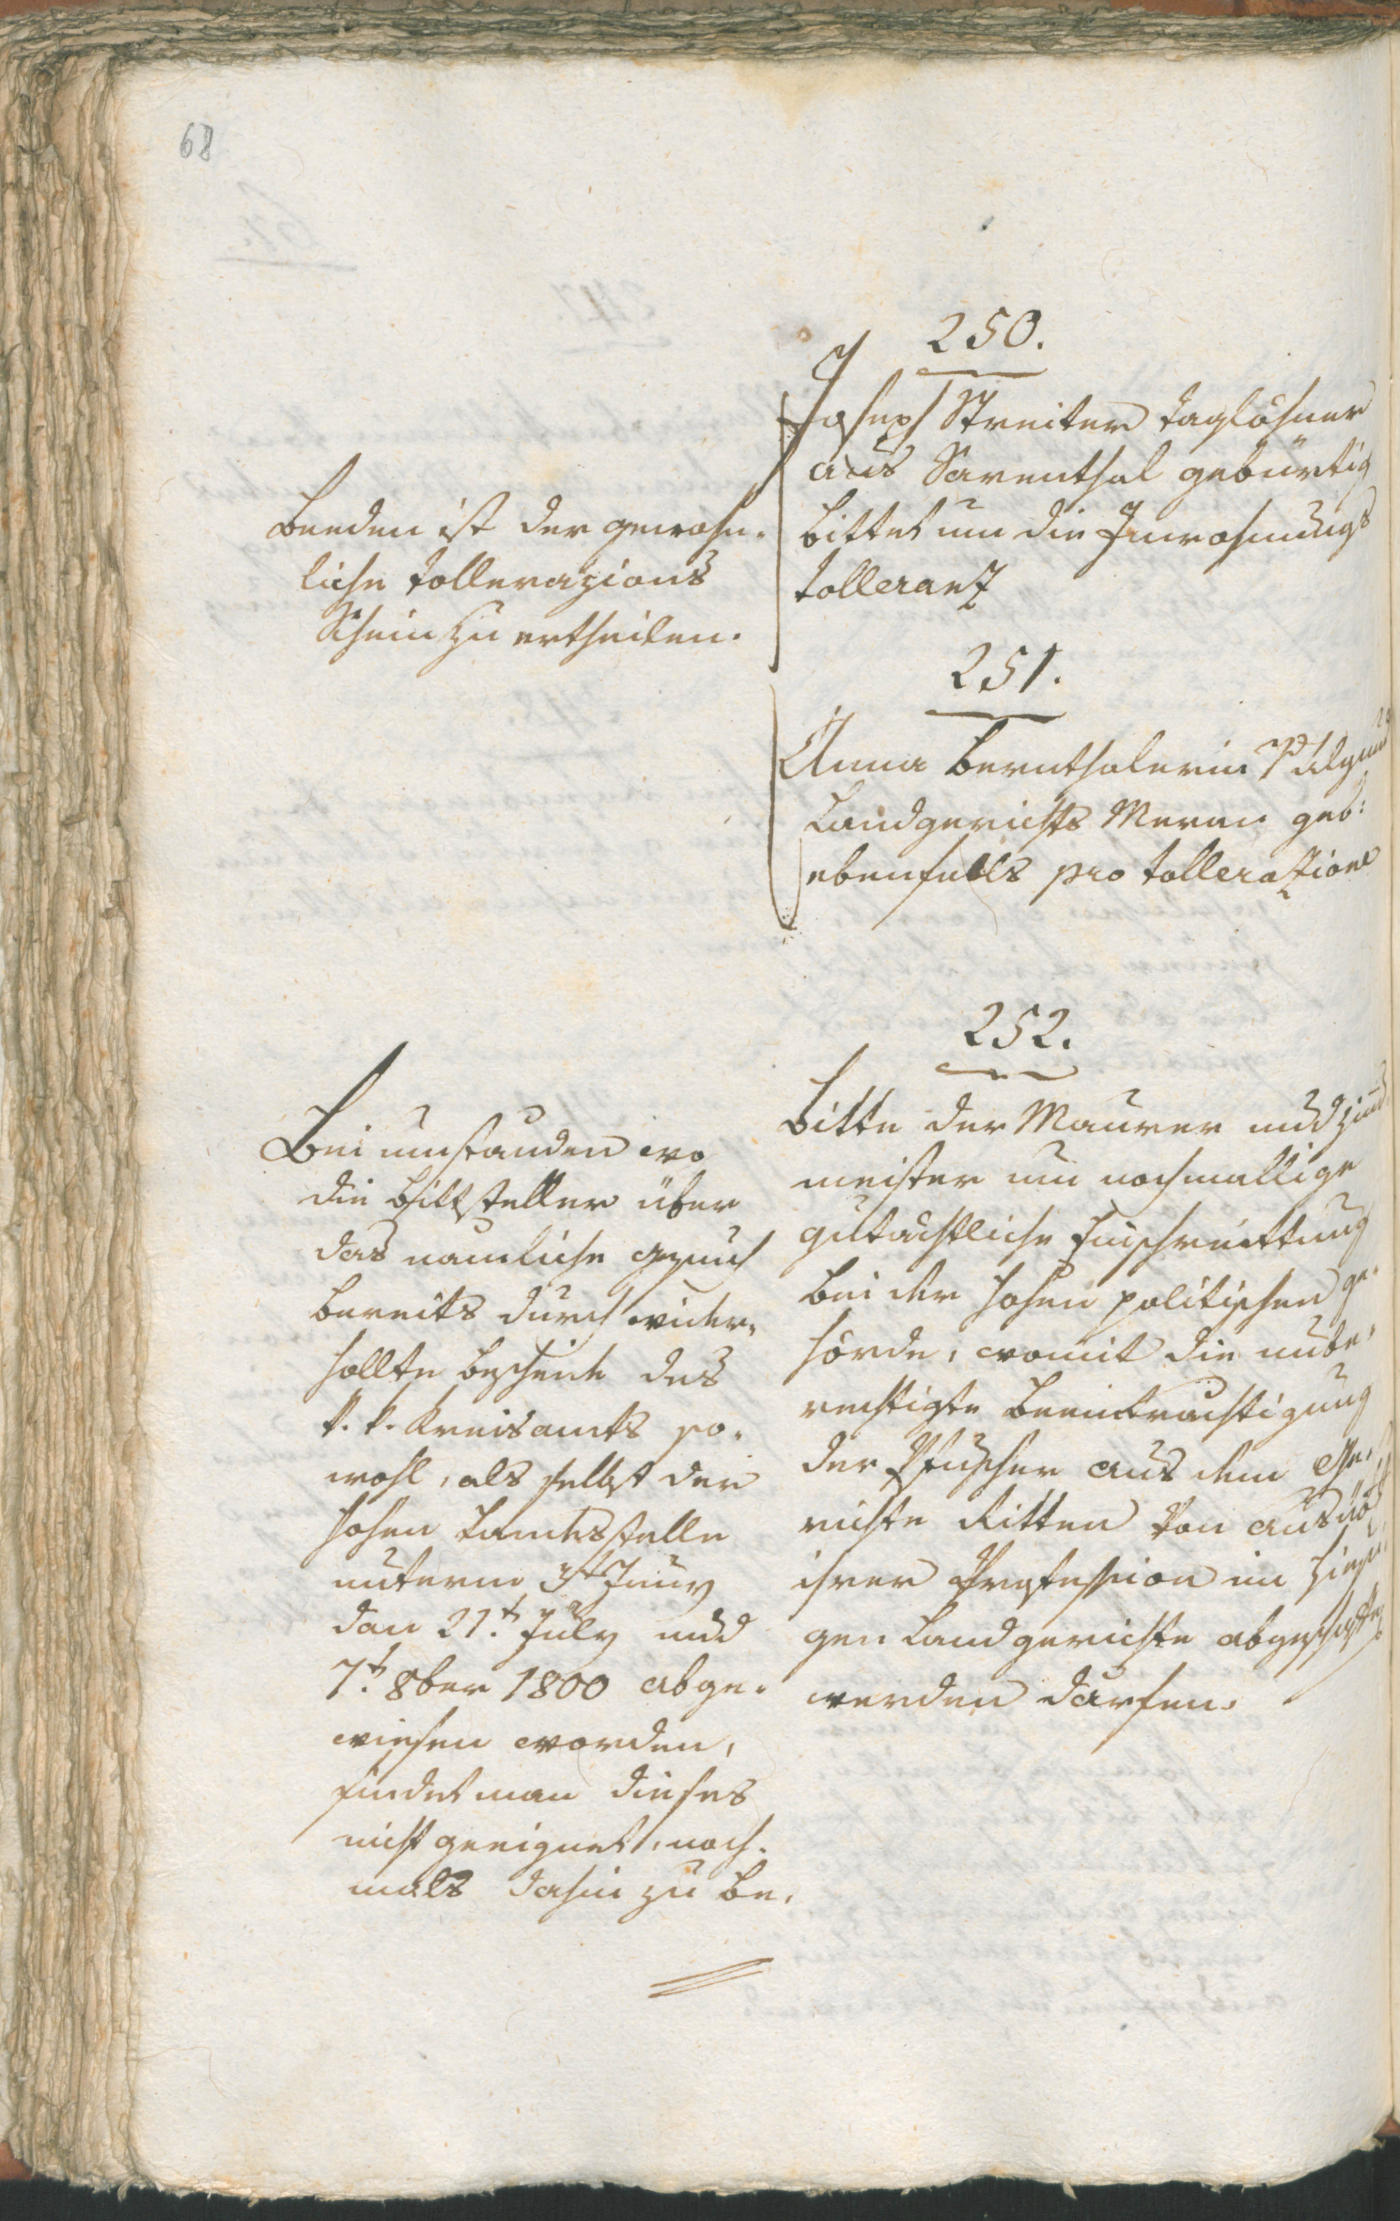 68
250.
Joseph Streiter Taglöhner
aus Sarenthal gebürtig
bittet um die Inwohnungs
tolleranz
Beeden ist der gewohn-
liche Tollerazions
Schein zu ertheilen.
251.
Anna Bernthalerin
Landgerichts Meran geb:
ebenfalls pro tollerazione
252.
Bitte der Maurer und
meister um nochmallige
gutächtliche Einschreittung
bei der hohen politischen ge-
hörde, womit die unbe-
rechtigte Beeintrachtigung
der Pfuscher aus dem Ge-
richte Ritten von
ihrer Profession im
gen Landgerichte abgeschaft
werden darfen.
Bei umstanden wo
die Bittsteller über
das namliche Gesuch
bereits durch wider-
hollte Bescheide des
k. k. Kreisamts so-
wohl, als selbst der
hohen Landesstelle
unterm 3t Juny
dan 21t July und
7t 8ber 1800 abge-
wiesen worden,
findet man dieses
nicht geeignet, noch-
mals dahin zu be-